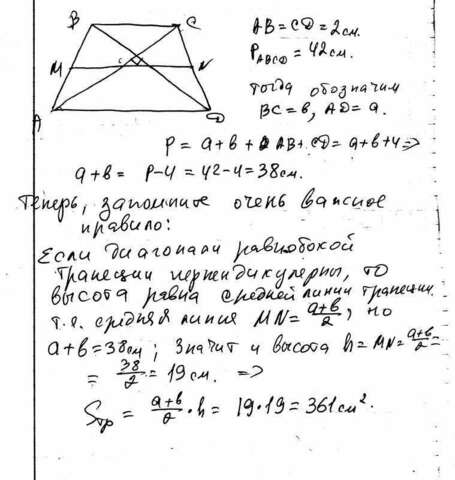 B C
M N
A D
AB = CD = 2см.
P_ABCD = 42см.
тогда обозначим
BC = b, AD = a.
P = a+b+ AB+CD = a+b+4 ⇒
a+b = P-4 = 42-4 = 38см.
Теперь, запомните очень важное
правило:
Если диагонали равнобокой
трапеции перпендикулярны, то
высота равна средней линии трапеции.
т.я. средняя линия MN = (a+b)/2, но
a+b = 38см; значит и высота h = MN = (a+b)/2 =
= 38/2 = 19 см. ⇒
Sтр = (a+b)/2 · h = 19·19 = 361 см².